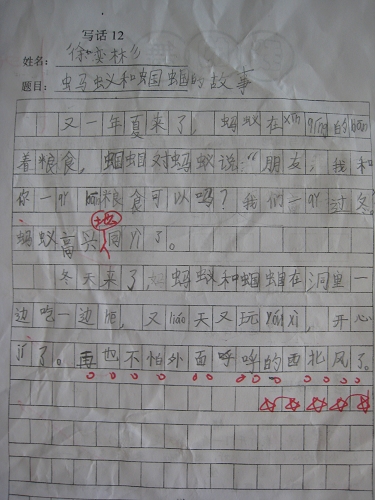 写话 12
姓名：徐奕林
题目：蚂蚁和蝈蝈的故事
又一年夏来了，蚂蚁在xīn qíng的bān
着粮食，蝈蝈对蚂蚁说："朋友，我和
你一吖bān粮食可以吗？我们一吖过冬。
地
蚂蚁高兴同吖了。
冬天来了，蚂蚁和蝈蝈在洞里一
边吃一边，又liáo天又玩yóu xì，开心
吖了。再也不怕外面呼呼的西北风了。